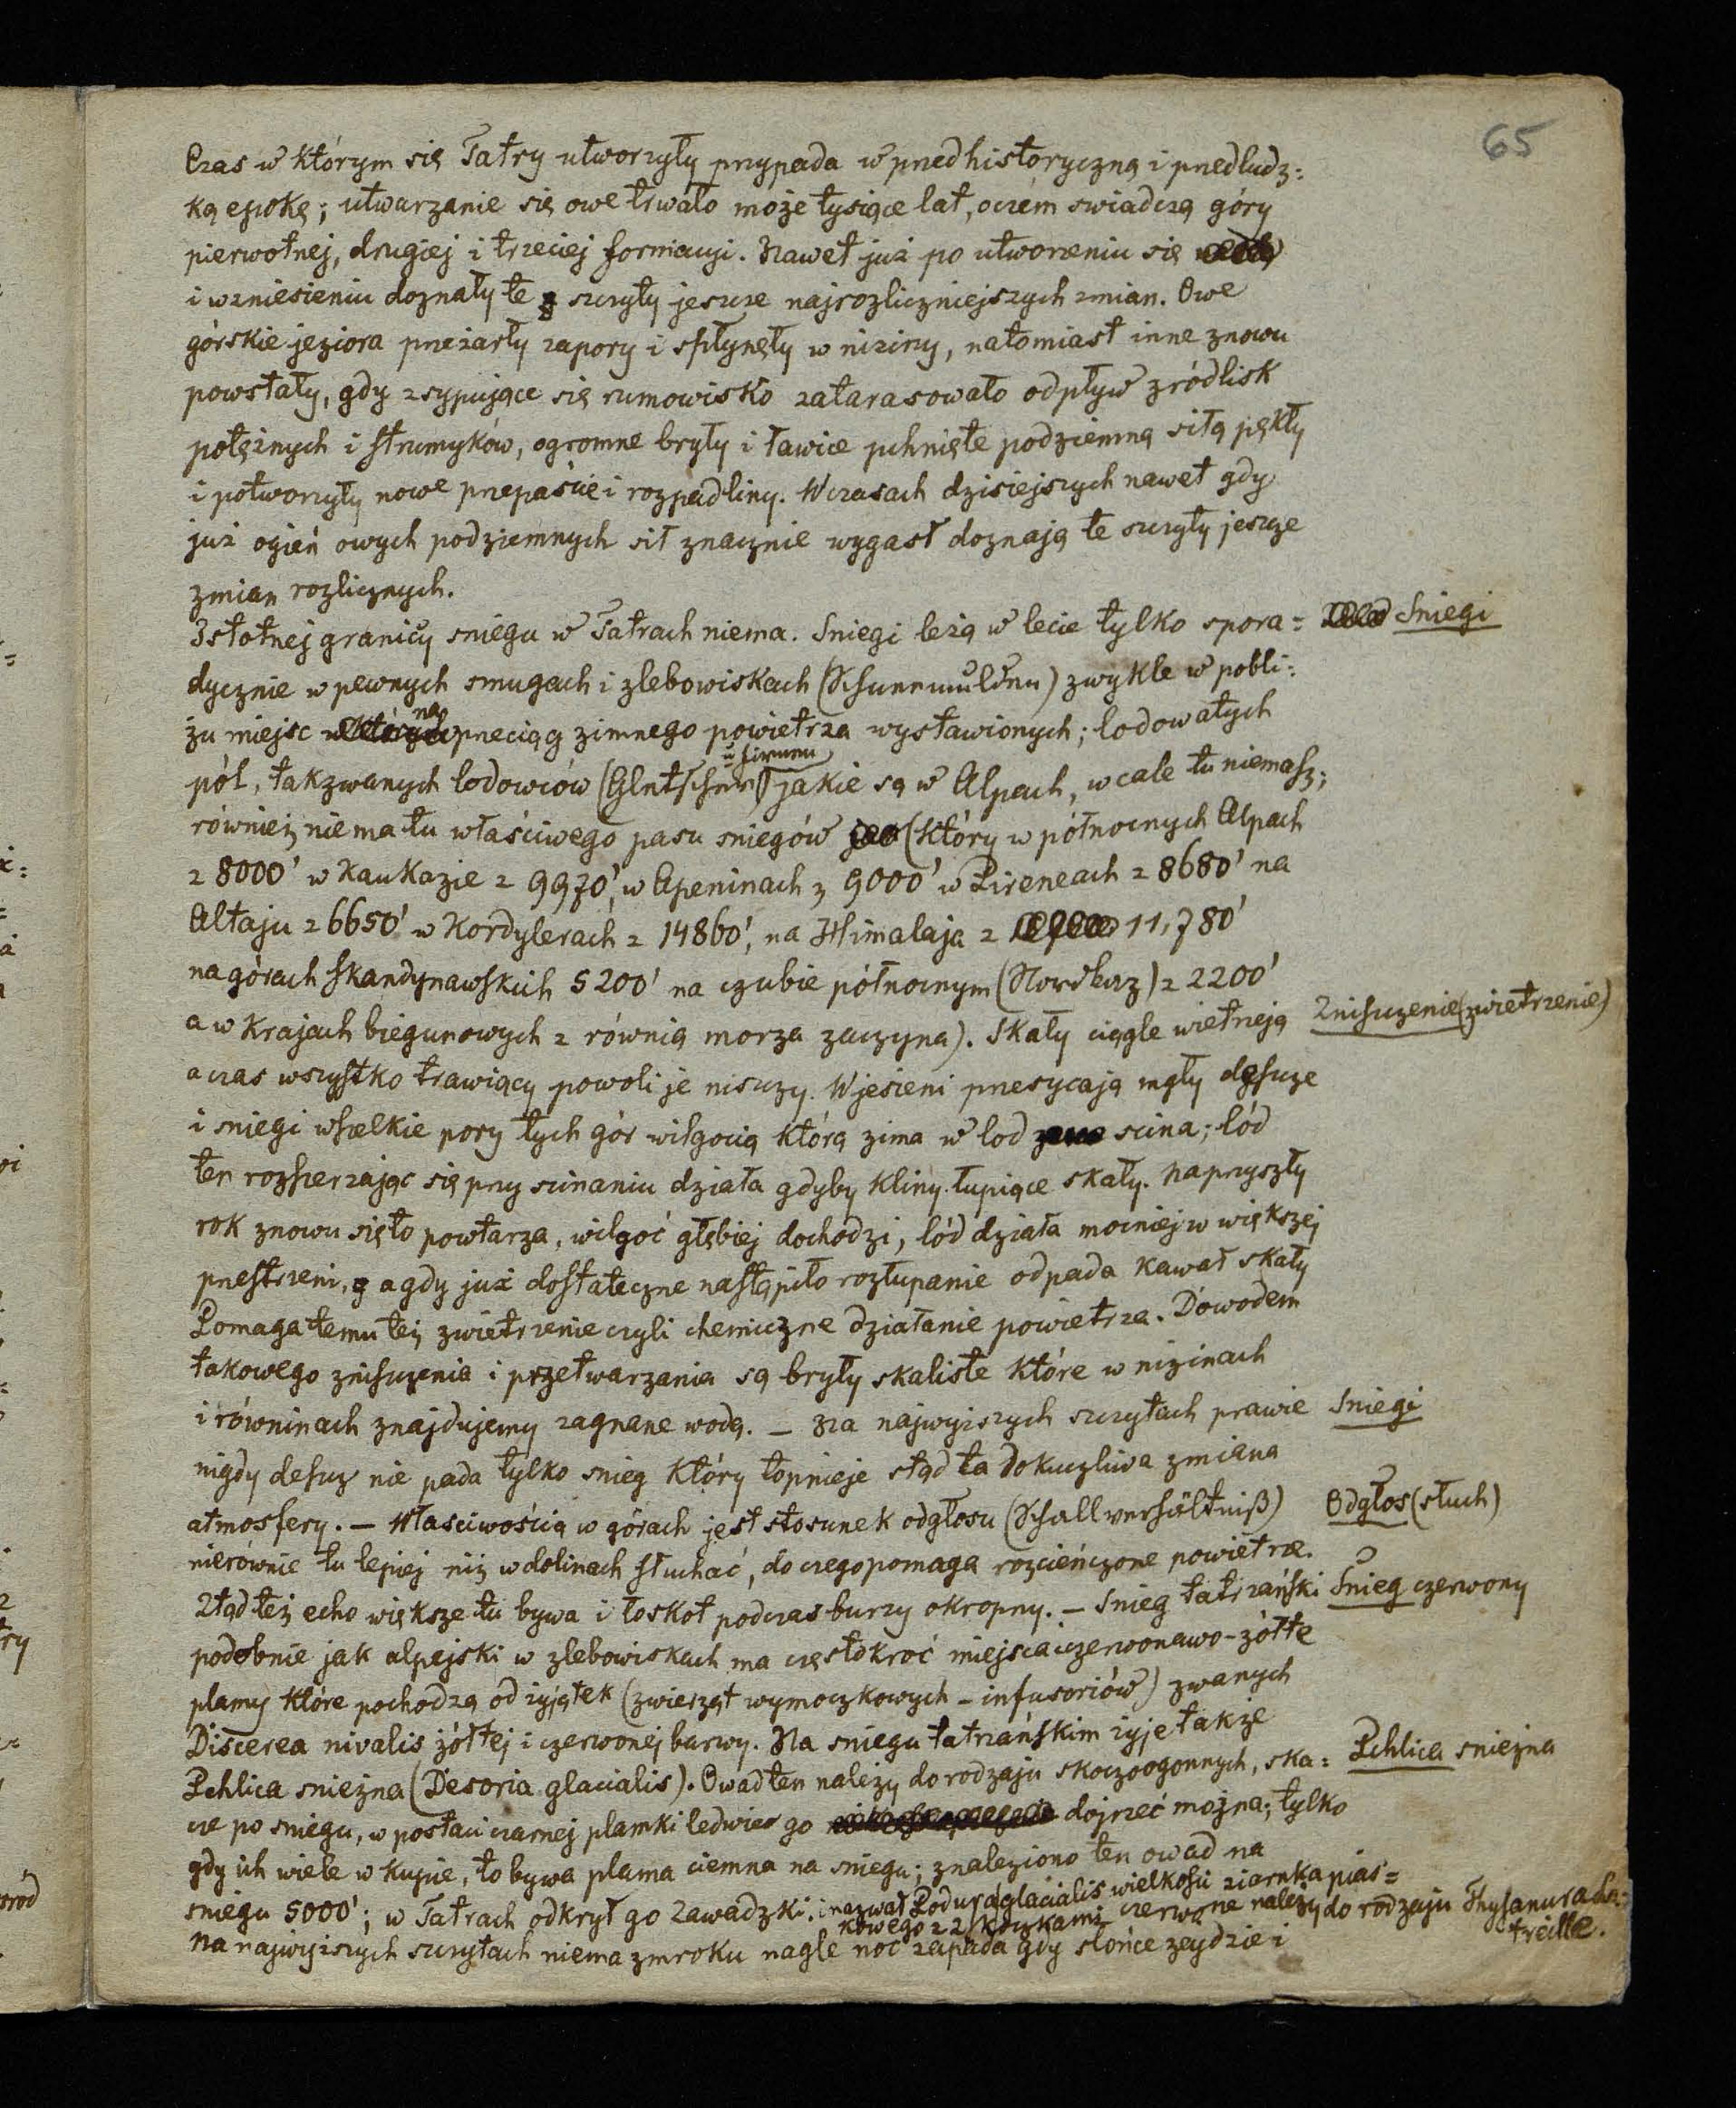 65
Czas w którym się Tatry utworzyły przypada w przedhistoryczną i przedludz:
ką epokę; utwarzanie się owe trwało może tysiące lat, oczém swiadczą góry
pierwotnej, drugiej i trzeciej formacyi. Nawet już po utworzeniu się
i wzniesieniu doznały te szczyty jeszcze najrozliczniejszych zmian. Owe
górskie jeziora przeżarły zapory i spłynęły w niziny, natomiast inne znowu
powstały, gdy zsypujące się rumowisko zatarasowało odpływ zródlisk
potężnych i strumyków, ogromne bryły i ławice pchnięte podziemną siłą pękły
i potworzyły nowe przepaście i rozpadliny. W czasach dzisiejszych nawet gdy
już ogień owych podziemnych sił znacznie wygasł doznają te szczyty jeszcze
zmian rozlicznych.
Istotnej granicy sniegu w Tatrach niema. Sniegi leżą w lecie tylko spora= Sniegi
dycznie w pewnych smugach i zlebowiskach (Schneemulden) zwykle w pobli:
żu miejsc na przeciąg zimnego powietrza wystawionych; lodowatych
pól, takzwanych lodowców (Gletscher u firnen) jakie są w Alpach, wcale tu niemasz;
również niema tu właściwego pasu sniegów (który w północnych Alpach
z 8000' w Kaukazie z 9970', w Apeninach z 9000' w Pireneach z 8680' na
Altaju z 6650' w Kordylerach z 14860', na Himalaja z 11,780'
na górach skandynawskich 5200' na czubie północnym (Nordkap) z 2200'
a w krajach biegunowych z równią morza zaczyna). Skały ciągle wietrzeją Zniszczenie (zwietrzenie)
a czas wszystko trawiący powoli je niszczy. W jesieni przesycają mgły deszcze
i sniegi wszelkie pory tych gór wilgocią którą zima w lod scina; lód
ten rozszerzając się przy scinaniu działa gdyby kliny łupiące skały. Na przyszły
rok znowu się to powtarza, wilgoć głębiej dochodzi, lód działa mocniej w większej
przestrzeni, a gdy już dostateczne nastąpiło rozłupanie odpada kawał skały
Pomaga temu też zwietrzenie czyli chemiczne działanie powietrza. Dowodem
takowego zniszczenia i przetwarzania są bryły skaliste które w nizinach
i równinach znajdujemy zagnane wodą. – Na najwyższych szczytach prawie Sniegi
nigdy deszcz nie pada tylko snieg który topnieje stąd ta dokuczliwa zmiana
atmosfery. – Własciwością w górach jest stosunek odgłosu (Schallverhältniß) Odgłos (słuch)
nierównie tu lepiej niż w dolinach słuchać, do czego pomaga rozcieńczone powietrze.
Ztąd też echo większe tu bywa i łoskot podczas burzy okropny. – Snieg tatrzański Snieg czerwony
podobnie jak alpejski w zlebowiskach ma częstokroć miejsca czerwonawo-żółte
plamy które pochodzą od żyjątek (zwierząt wymoczkowych – infusoriów) zwanych
Discerea nivalis żółtej i czerwonej barwy. Na sniegu tatrzańskim żyje także
Pchlica snieżna (Desoria glacialis). Owad ten należy do rodzaju skoczoogonnych, ska= Pchlica snieżna
cze po sniegu, w postaci czarnej plamki ledwie go dojrzeć można; tylko
gdy ich wiele w kupie, to bywa plama ciemna na sniegu; znaleziono ten owad na
sniegu 5000'; w Tatrach odkrył go Zawadzki, i nazwał Podura glacialis wielkości ziarnka pias=
kowego z 2 czerwone należy do rodzaju Thysanura La:
treille.
Na najwyższych szczytach niema zmroku nagle noc zapada gdy słońce zeydzie i